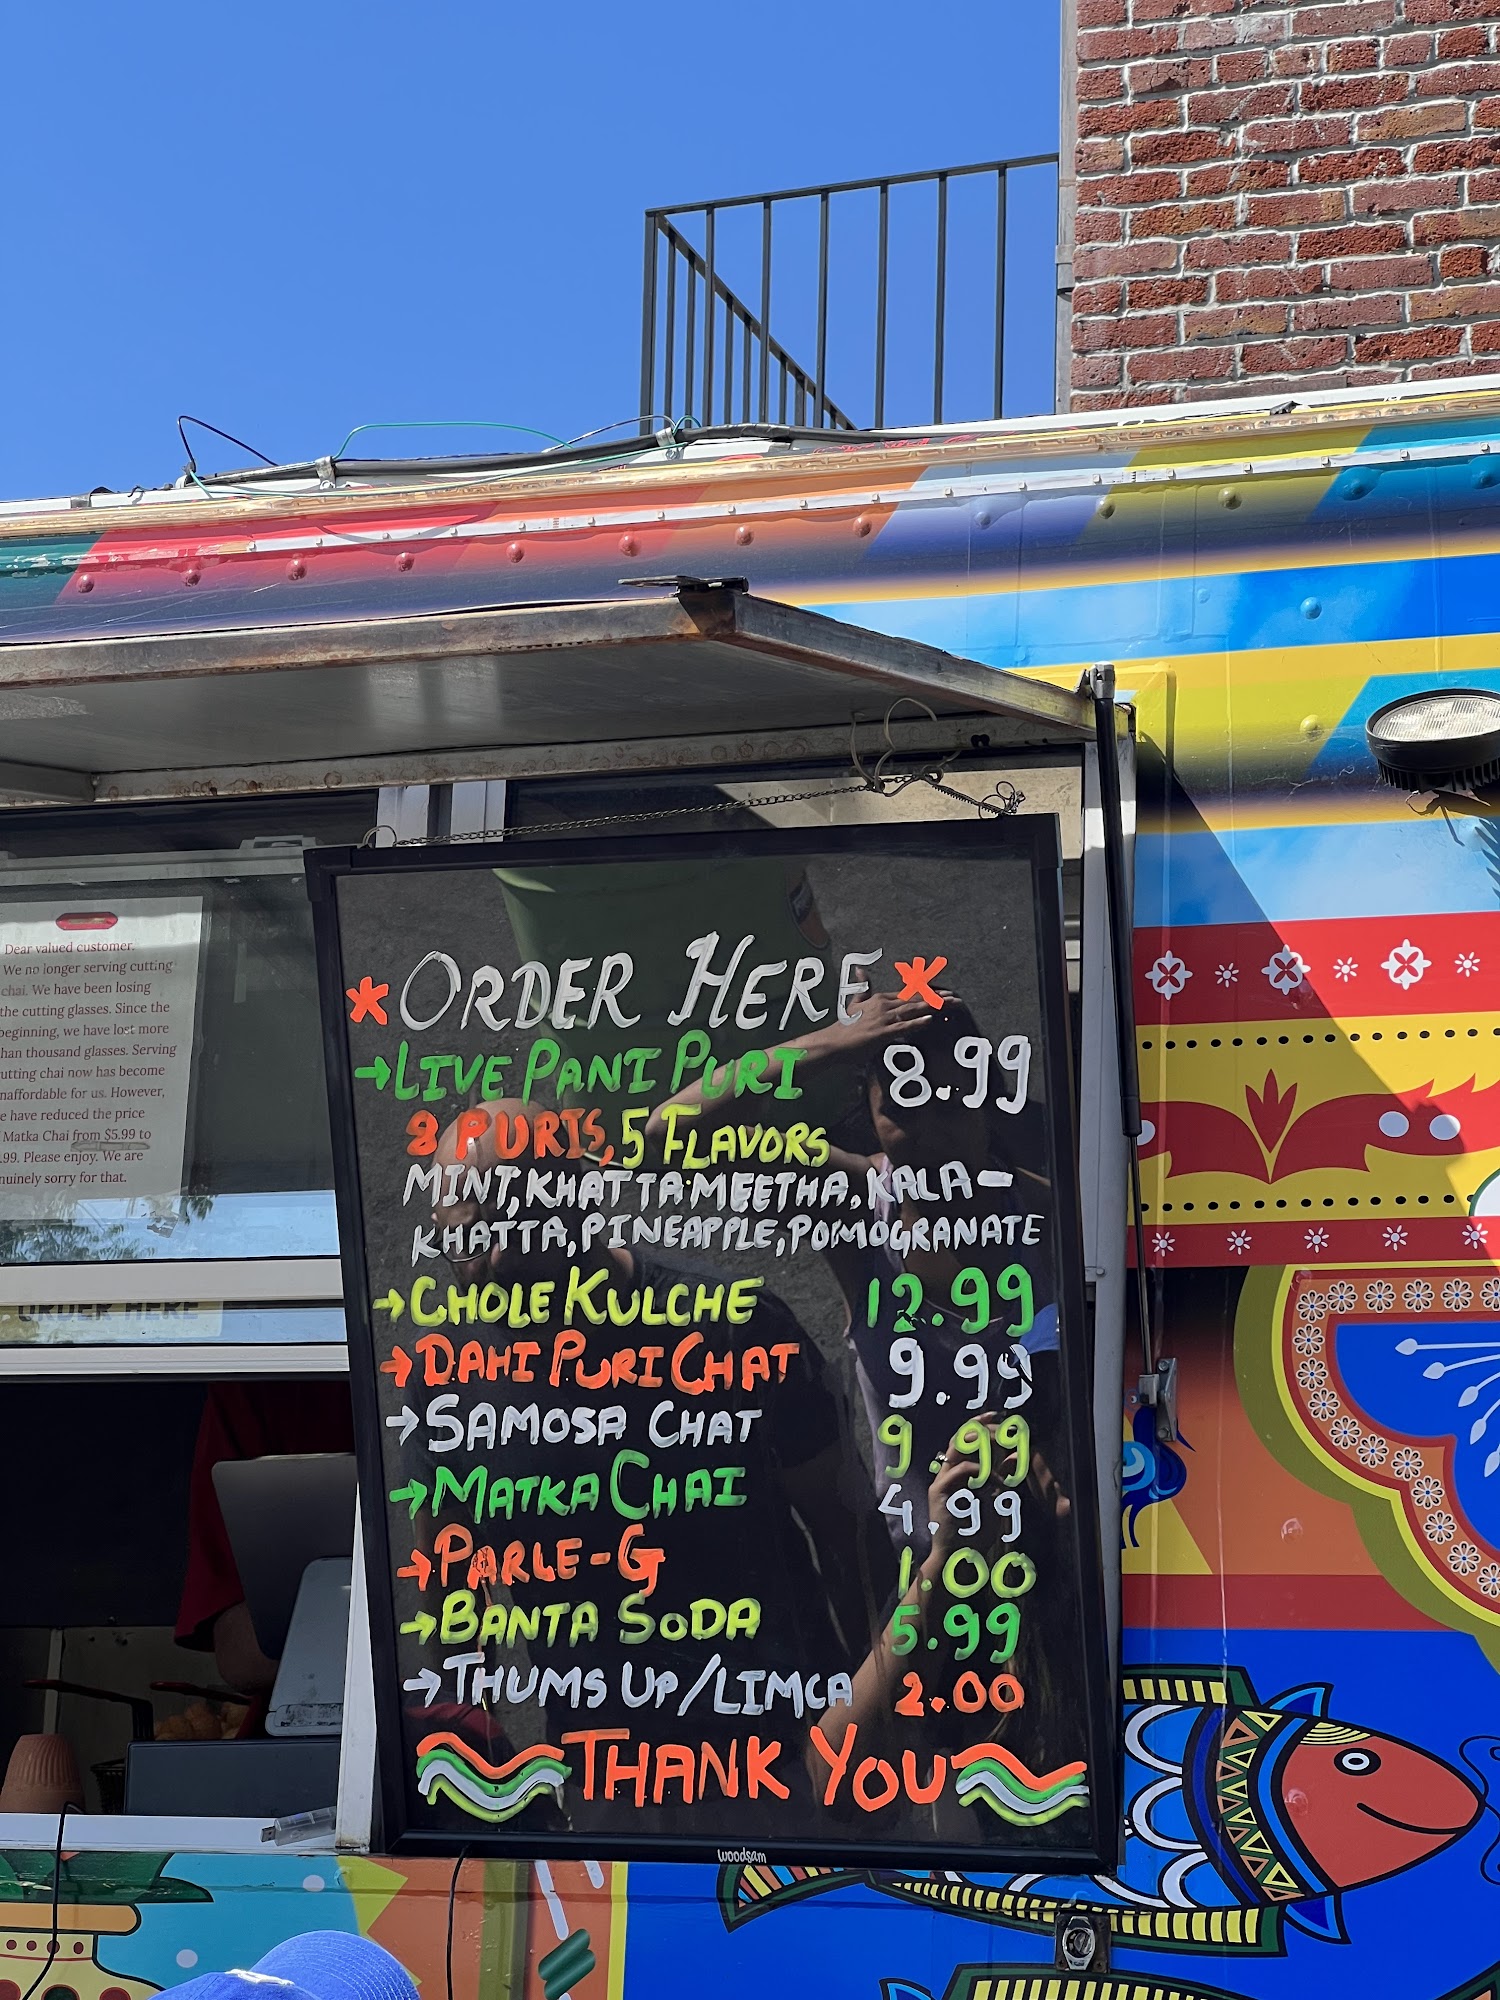 Dear valued customer.
We no longer serving cutting
chai. We have been losing
the cutting glasses. Since the
beginning, we have lost more
than thousand glasses. Serving
cutting chai now has become
unaffordable for us. However,
we have reduced the price
Matka Chai from $5.99 to
.99. Please enjoy. We are
genuinely sorry for that.
ORDER HERE
* ORDER HERE *
→ LIVE PANI PURI 8.99
8 PURIS, 5 FLAVORS
MINT, KHATTA MEETHA, KALA-
KHATTA, PINEAPPLE, POMOGRANATE
→ CHOLE KULCHE 12.99
→ DAHI PURI CHAT 9.99
→ SAMOSA CHAT 9.99
→ MATKA CHAI 4.99
→ PARLE-G 1.00
→ BANTA SODA 5.99
→ THUMS UP/LIMCA 2.00
THANK YOU
woodsam